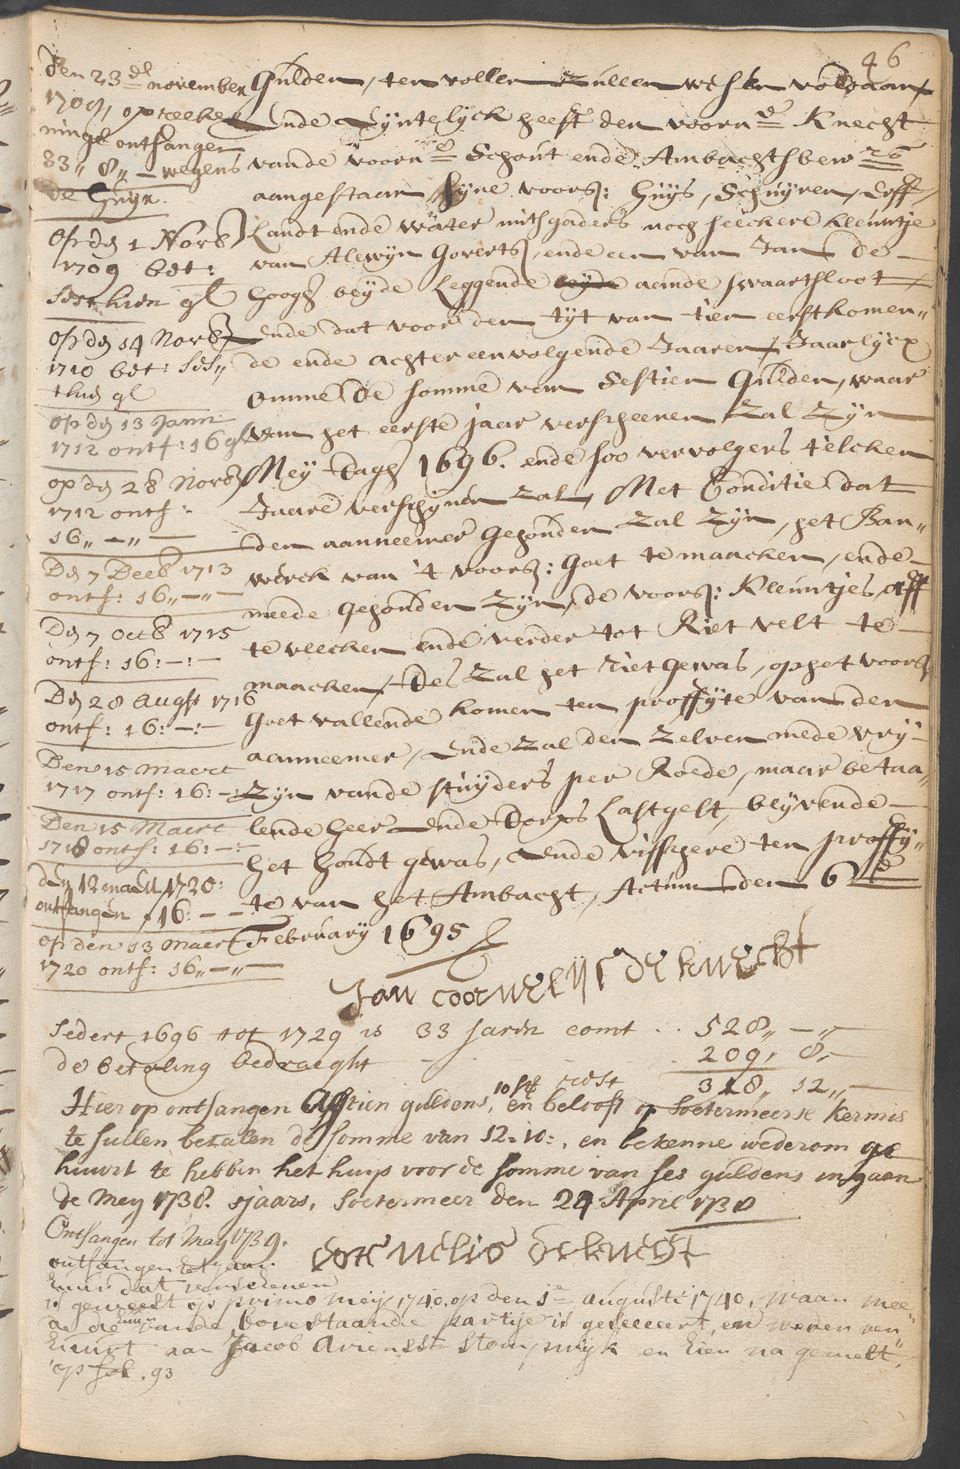 46
den 23 de november
1709, op reeke
ninge ontfangen
83,, 8,, — wegens
de huijr.
Op den 1 Novb
1709 bet:
sesthien gl
op den 14 Novb
1710 bet: ses,,
thien gl
op den 13 Janu
1712 ontf: 16 gl
op den 28 Novb
1712 ontf:
16,, —,, —
Den 7 Decb 1713
ontf: 16,, —,, —
Den 7 octb 1715
ontf: 16: —: —
Den 28 Augst 1716
ontf: 16: —: —
Den 15 Maert
1717 ontf: 16: —:
Den 15 Maert
1718 ontf: 16: —:
den 12 maert 1720:
ontfangen 16: — —
op den 13 Maert
1720 ontf: 16,, —,, —
Gulden, ten vollen zullen wesen voldaan
Ende Eijntelijck heeft den voorn de Knecht
vande voorn de Schout ende Ambachtsbew
aangestaan sijne voors: huijs, Schuijren, Erff
Landt ende water mitsgaders noch seeckere kleuntje
van Alewijn Goverts, ende een van Jan de
hoogh beijde Leggende beijde aande swaartsloot
ende dat voor den tijt van tien eerstkomen,,
de ende achtereenvolgende Jaaren, Jaarlijcx
omme de somme van Sestien Gulden, waar
van het eerste jaar verscheenen Zal Zijn
Meij Dagh 1696. ende soo vervolgens t'elcken
Jaare verschijnen zal, Met Conditie dat
den aanneemer Gehouden zal zijn, het
werck van 't voors: Goet te maacken, ende
meede gehouden Zijn, de voors: Kleuntjes aff
te ende verder tot Riet velt te
maacken, Des zal het riet gewas, op het voors
Goet vallende komen ten proffijte van den
aanneemer, Ende Zal den Zelven mede vrij
Zijn vande stuijders per Roede, maar betaa,,
lende heer ende Dorps Lastgelt, blijvende
het houdt gewas, ende visscherie ten proffij,,
te van het Ambacht, Actum den 6 de
Februarij 1695
Jan coornelijs de knecht
Sedert 1696 tot 1729 is 33 Jaren comt .. 528,, —,,
de betaling bedraeght - - 209,, 8,—
rest 318,, 12,, —
Hier op ontfangen guldens, 10 st en belooft op Soetermeerse kermis
te sullen betalen de somme van 12-10:, en bekenne wederom ge
huurt te hebben het huijs voor de somme van ses guldens ingaen
de Meij 1738. sjaars, Soetermeer den 24 April 1738
Ontfangen tot Maij 1739.
cornelis de knecht
ontfangen het jaar
huur dat verschenen
is geweest op primo meij 1740. op den 1e augusti 1740, waar mee
de huur vande bovestaande partije is gereeeert, en weder ver
huurt aan Jacob Ariensz stompwijk en hier na gemelt,
op fol. 93